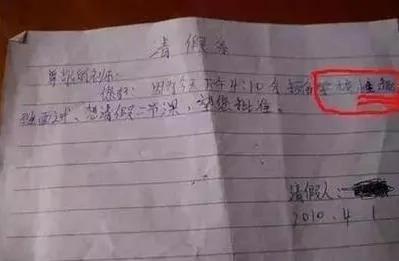 请假条
尊敬的老师:
您好! 因为今天下午4:10分
面试、想请假二节课,望您批准。
请假人:
2010.4.1